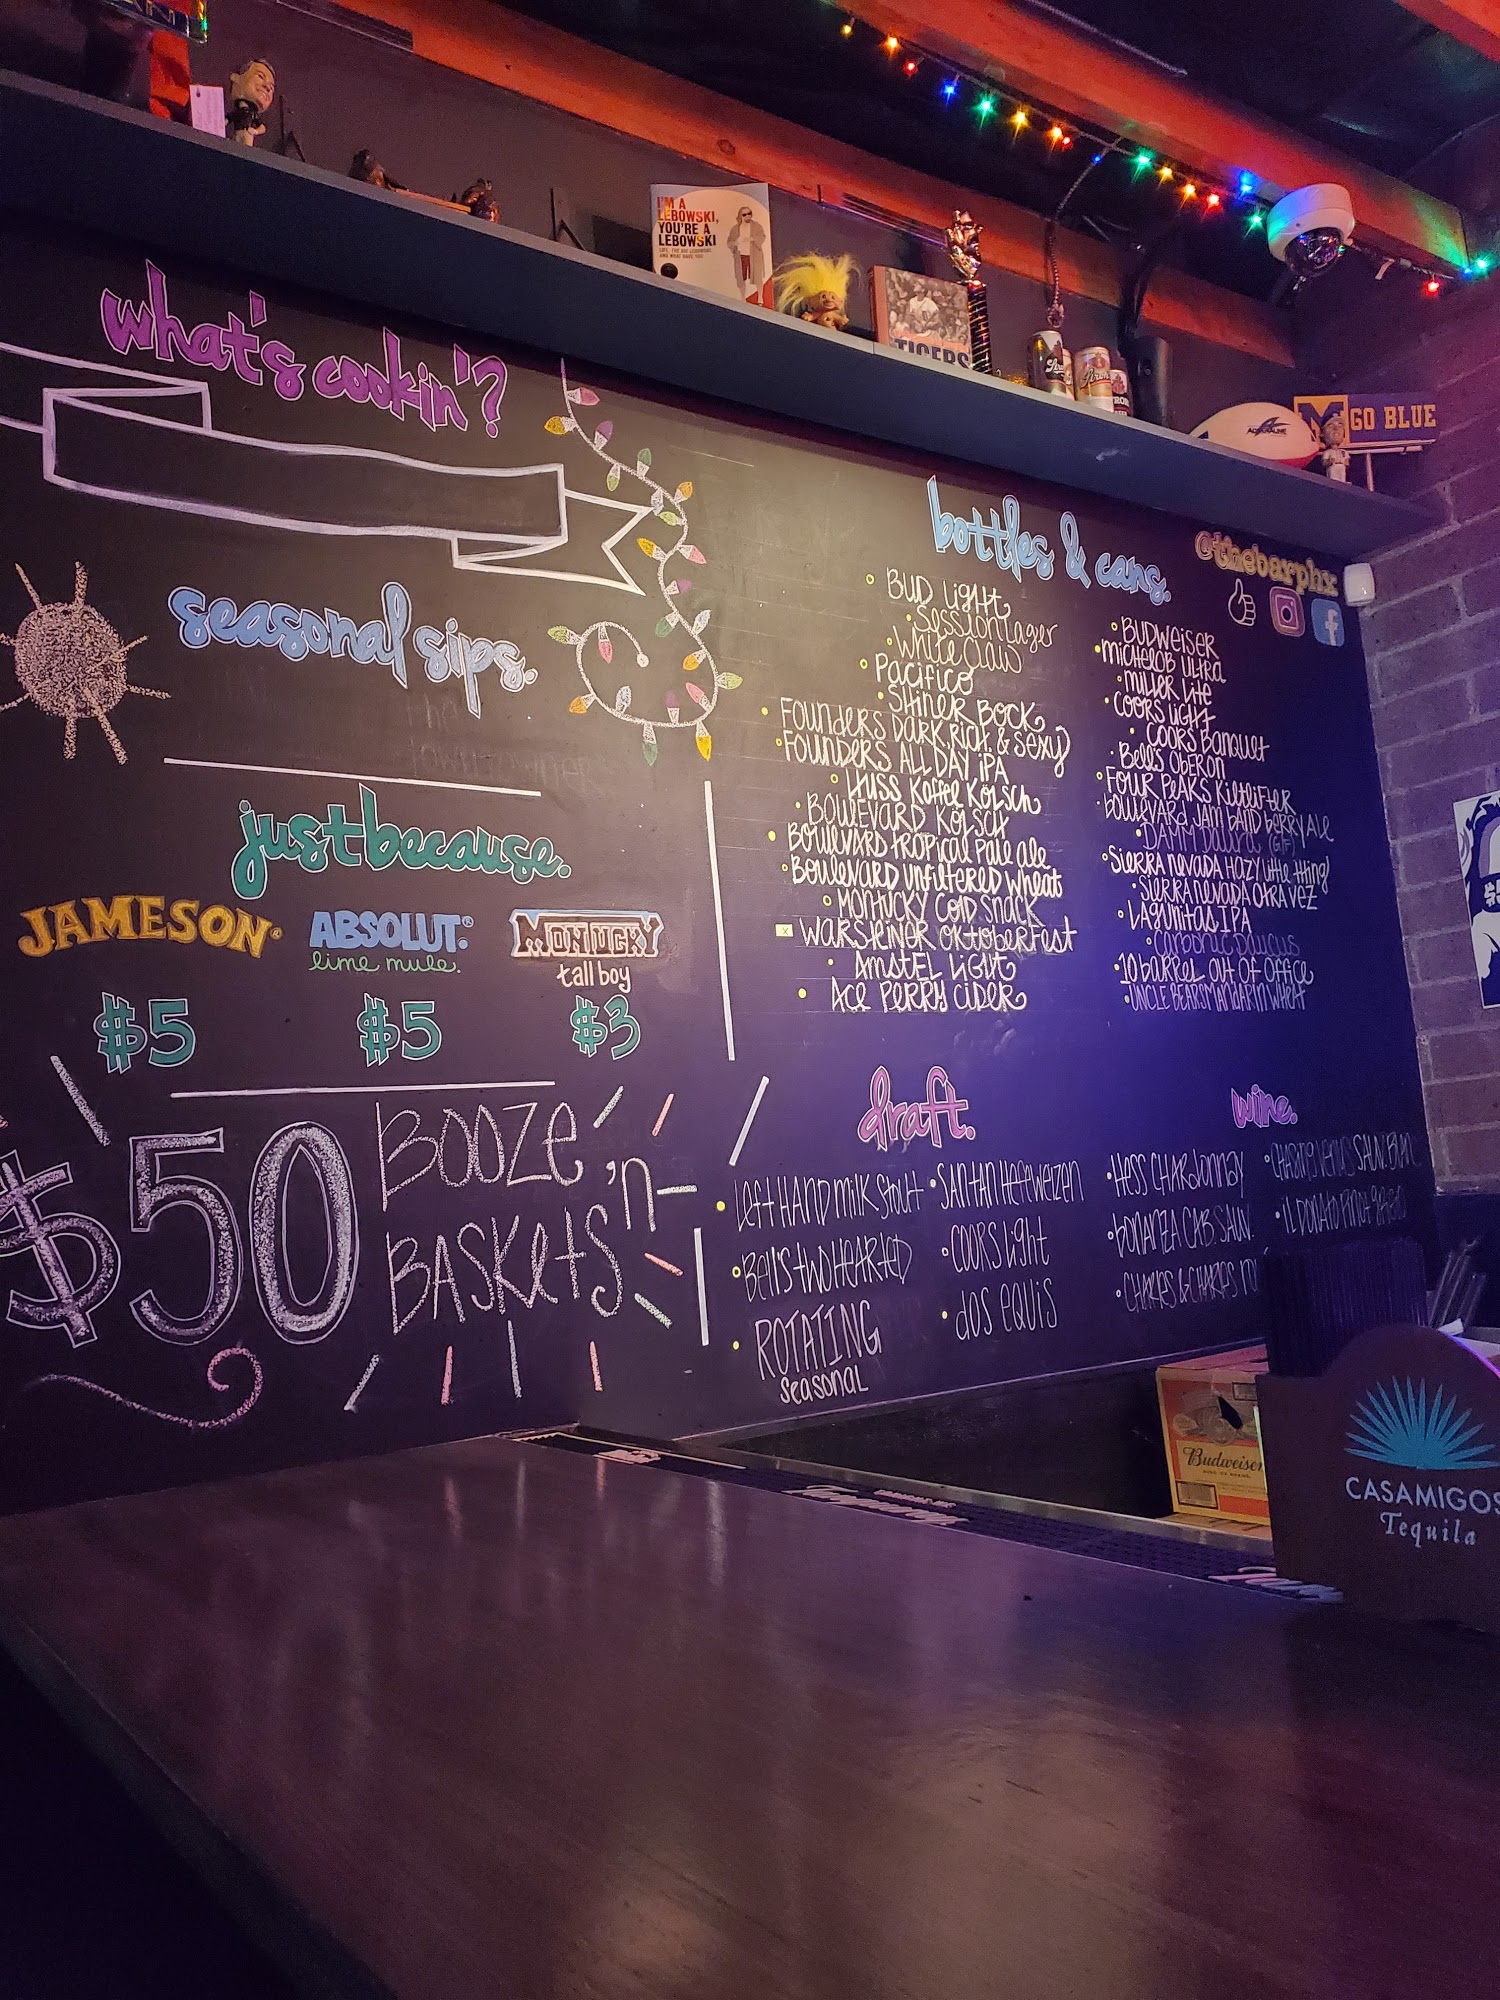 I'M A
LEBOWSKI,
YOU'RE A
LEBOWSKI
LIFE, THE BIG LEBOWSKI
AND WHAT HAVE YOU
TIGERS
M GO BLUE
what's cookin'?
seasonal sips.
just because.
JAMESON
ABSOLUT®
lime mule.
MONTUCKY
tall boy
$5
$5
$3
$50 BOOZE 'n
BASKETS
bottles & cans.
BUD LIGHT
Session Lager
White Claw
Pacifico
SHINER BOCK
FOUNDERS DARK, RICH, & Sexy
FOUNDERS ALL DAY IPA
HUSS Koffee KölscH
BOULEVARD KÖLSCH
BOULEVARD tropical Pale ale
BOULEVARD UNFILTERED WHEAT
MONTUCKY COLD SNACK
WARSTEINER OKTOBERFEST
AMSTEL LIGHT
ACE PERRY CIDER
@thebarphx
BUDWEISER
MICHELOB ULTRA
MILLER LITE
COORS LIGHT
COORS BANQUET
Bell's OBERON
FOUR PEAKS KILTLIFTER
BOULEVARD JAM BAND BERRY ALE
DAMM DAURA (GF)
SIERRA NEVADA HAZY Little thing
SIERRA NEVADA OTRA VEZ
LAGUNITAS IPA
CARBONIC DAUCUS
10 BARREL OUT OF OFFICE
draft.
LEFT HAND MILK STOUT
BELL'S TWO HEARTED
ROTATING
SEASONAL
SANTAN HEFEWEIZEN
COORS LIGHT
DOS EQUIS
wine.
HESS CHARDONNAY
BONANZA CAB. SAUV.
CHARLES & CHARLES
CHASING VENUS SAUV. BLAN
IL DONATO PINOT GRIGIO
Budweiser
CASAMIGOS
Tequila